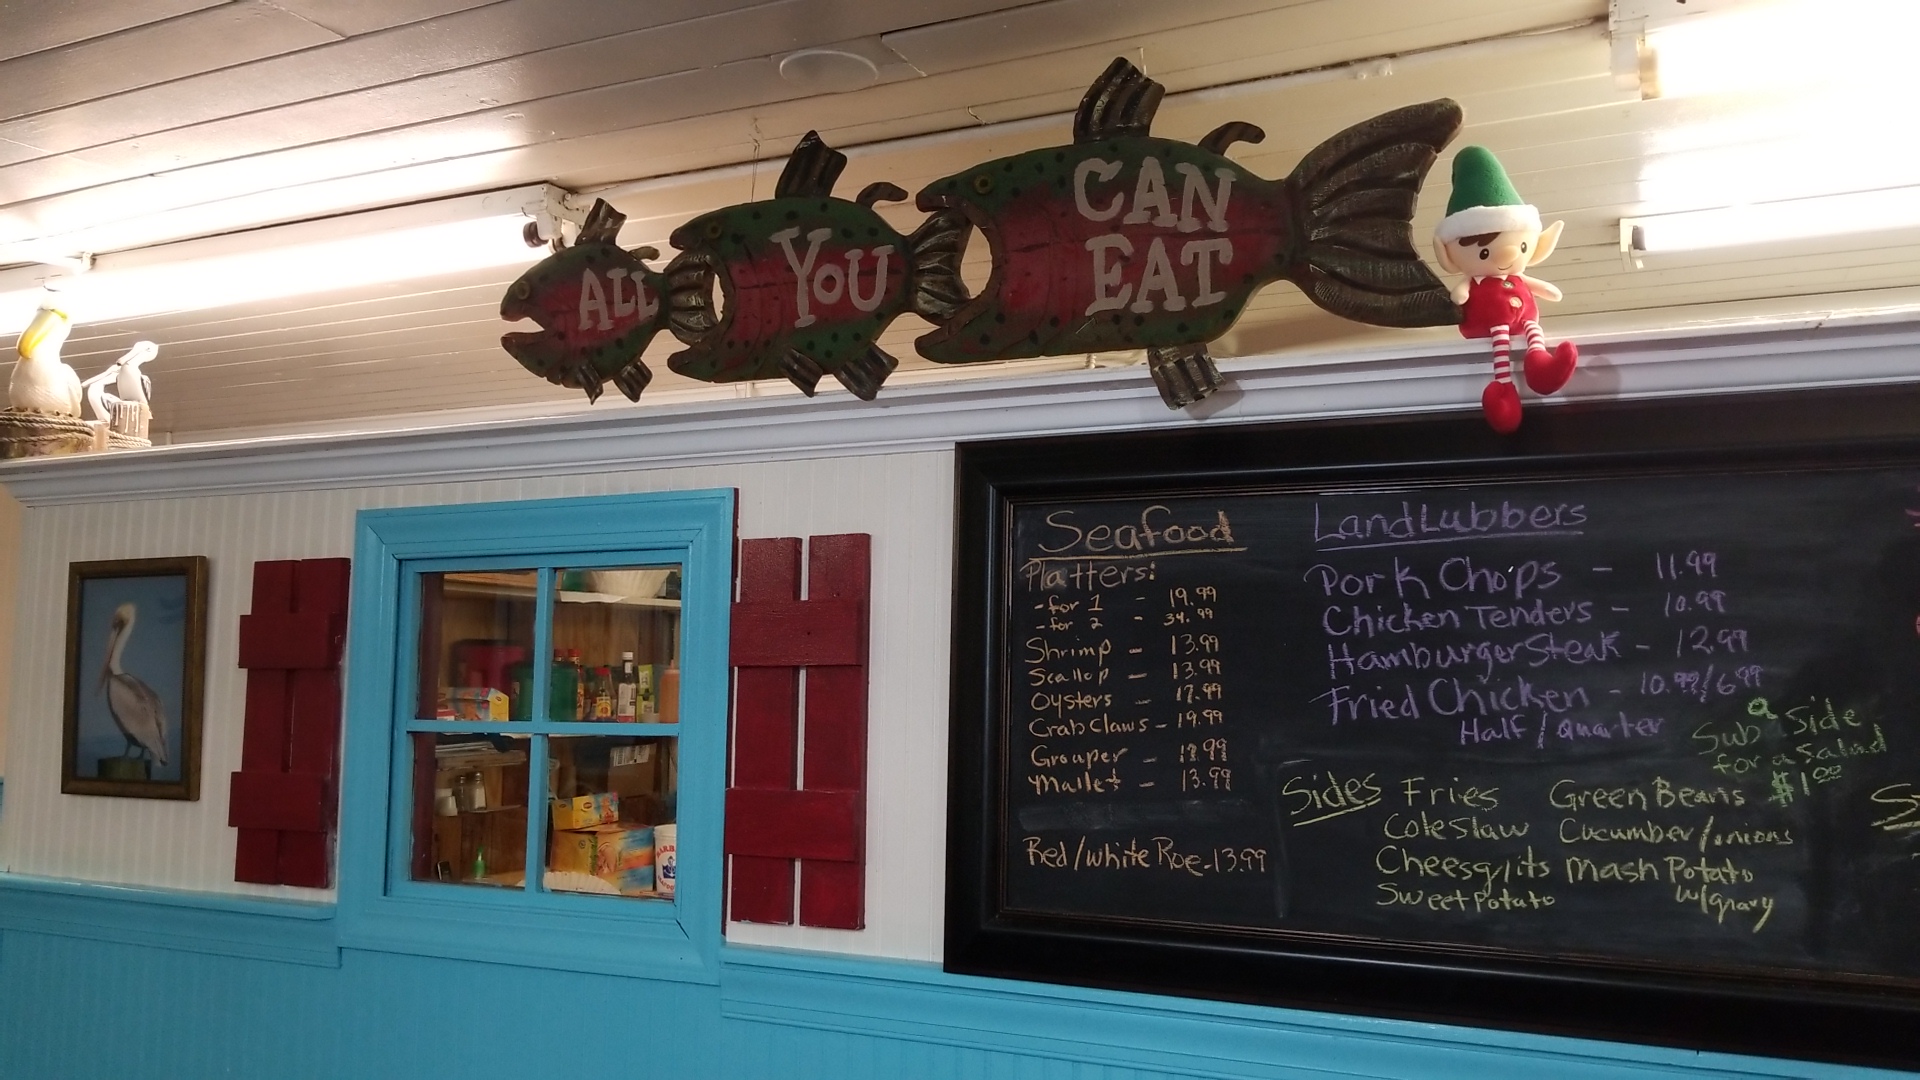 ALL
YOU
CAN
EAT
Seafood
Platters:
- for 1 - 19.99
- for 2 - 34.99
Shrimp - 13.99
Scallop - 13.99
Oysters - 17.99
Crab Claws - 19.99
Grouper - 18.99
Mullet - 13.99
Red/white Roe - 13.99
LandLubbers
Pork Chops - 11.99
Chicken Tenders - 10.99
Hamburger Steak - 12.99
Fried Chicken - 10.99/6.99
Half / Quarter
Sub a Side
for a Salad
$1.00
Sides
Fries
Coleslaw
Cheesgrits
Sweet Potato
Green Beans
Cucumber/onions
Mash Potato
w/gravy